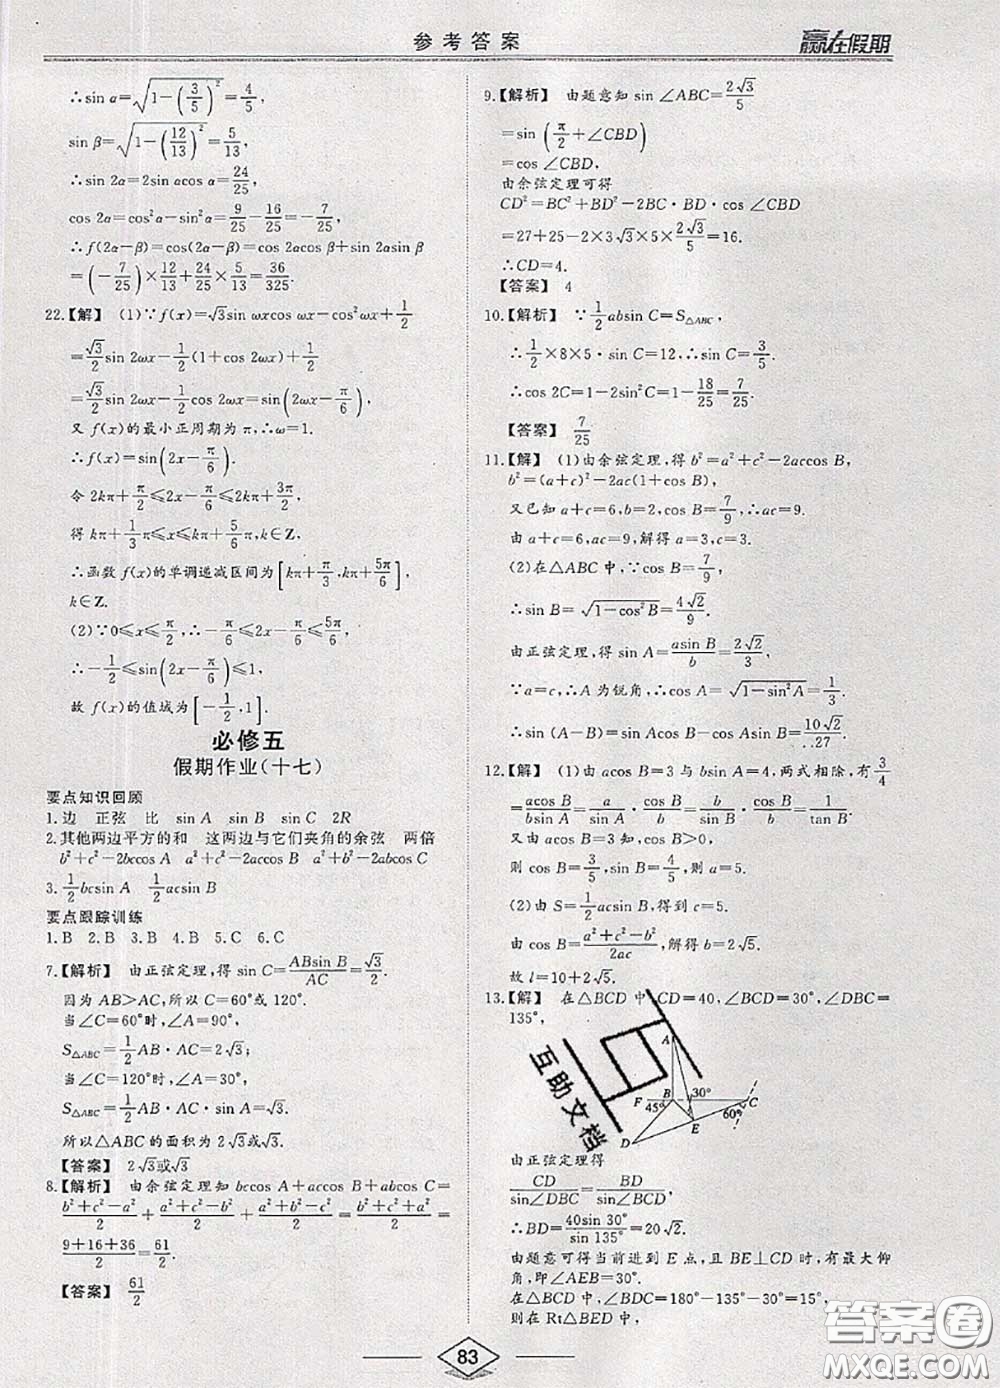 参考答案
赢在假期
∴sin α=√(1-(3/5)²)=4/5
sin β=√(1-(12/13)²)=5/13,
∴sin 2α=2sin αcos α=24/25,
cos 2α=cos²α-sin²α=9/25-16/25=-7/25,
∴f(2α-β)=cos(2α-β)=cos 2αcos β+sin 2αsin β
=(-7/25)×12/13+24/25×5/13=36/325.
22.【解】 (1)∵f(x)=√3sin ωxcos ωx-cos²ωx+1/2
=√3/2 sin 2ωx-1/2(1+cos 2ωx)+1/2
=√3/2 sin 2ωx-1/2 cos 2ωx=sin(2ωx-π/6),
又 f(x)的最小正周期为π,∴ω=1.
∴f(x)=sin(2x-π/6).
令 2kπ+π/2≤2x-π/6≤2kπ+3π/2,
得 kπ+1/3π≤x≤kπ+5/6π,k∈Z.
∴函数 f(x)的单调递减区间为[kπ+π/3,kπ+5π/6],
k∈Z.
(2)∵0≤x≤π/2,∴-π/6≤2x-π/6≤5π/6,
∴-1/2≤sin(2x-π/6)≤1,
故 f(x)的值域为[-1/2,1].
必修五
假期作业(十七)
要点知识回顾
1.边 正弦 比 sin A sin B sin C 2R
2.其他两边平方的和 这两边与它们夹角的余弦 两倍
b²+c²-2bccos A a²+c²-2accos B a²+b²-2abcos C
3.1/2bcsin A 1/2acsin B
要点跟踪训练
1.B 2.B 3.B 4.B 5.C 6.C
7.【解析】 由正弦定理,得 sin C=ABsin B/AC=√3/2.
因为 AB>AC,所以 C=60°或 120°.
当∠C=60°时,∠A=90°,
S△ABC=1/2AB·AC=2√3;
当∠C=120°时,∠A=30°,
S△ABC=1/2AB·AC·sin A=√3.
所以△ABC 的面积为 2√3或√3.
【答案】 2√3或√3
8.【解析】 由余弦定理知 bccos A+accos B+abcos C=
(b²+c²-a²)/2+(a²+c²-b²)/2+(a²+b²-c²)/2=(a²+b²+c²)/2=
(9+16+36)/2=61/2.
【答案】 61/2
9.【解析】 由题意知 sin ∠ABC=2√3/5
=sin(π/2+∠CBD)
=cos ∠CBD,
由余弦定理可得
CD²=BC²+BD²-2BC·BD·cos ∠CBD
=27+25-2×3√3×5×2√3/5=16.
∴CD=4.
【答案】 4
10.【解析】 ∵1/2absin C=S△ABC,
∴1/2×8×5·sin C=12,∴sin C=3/5.
∴cos 2C=1-2sin²C=1-18/25=7/25.
【答案】 7/25
11.【解】 (1)由余弦定理,得 b²=a²+c²-2accos B,
b²=(a+c)²-2ac(1+cos B),
又已知 a+c=6,b=2,cos B=7/9,∴ac=9.
由 a+c=6,ac=9,解得 a=3,c=3.
(2)在△ABC 中,∵cos B=7/9,
∴sin B=√(1-cos²B)=4√2/9.
由正弦定理,得 sin A=asin B/b=2√2/3,
∵a=c,∴A 为锐角,∴cos A=√(1-sin²A)=1/3.
∴sin(A-B)=sin Acos B-cos Asin B=10√2/27.
12.【解】 (1)由 acos B=3 与 bsin A=4,两式相除,有3/4
=acos B/bsin A=a/sin A·cos B/b=b/sin B·cos B/b=1/tan B.
又由 acos B=3 知,cos B>0,
则 cos B=3/5,sin B=4/5,则 a=5.
(2)由 S=1/2acsin B,得到 c=5.
由 cos B=(a²+c²-b²)/2ac,解得 b=2√5.
故 l=10+2√5.
13.【解】 在△BCD 中,CD=40,∠BCD=30°,∠DBC=
135°,
A
F B 30° C
45° 60°
E
D
由正弦定理得
CD/sin∠DBC=BD/sin∠BCD,
∴BD=40sin 30°/sin 135°=20√2.
由题意可得当前进到 E 点,且 BE⊥CD 时,有最大仰
角,即∠AEB=30°.
在△BCD 中,∠BDC=180°-135°-30°=15°,
则在 Rt△BED 中,
互助文档
83
答案圈
MXQE.COM